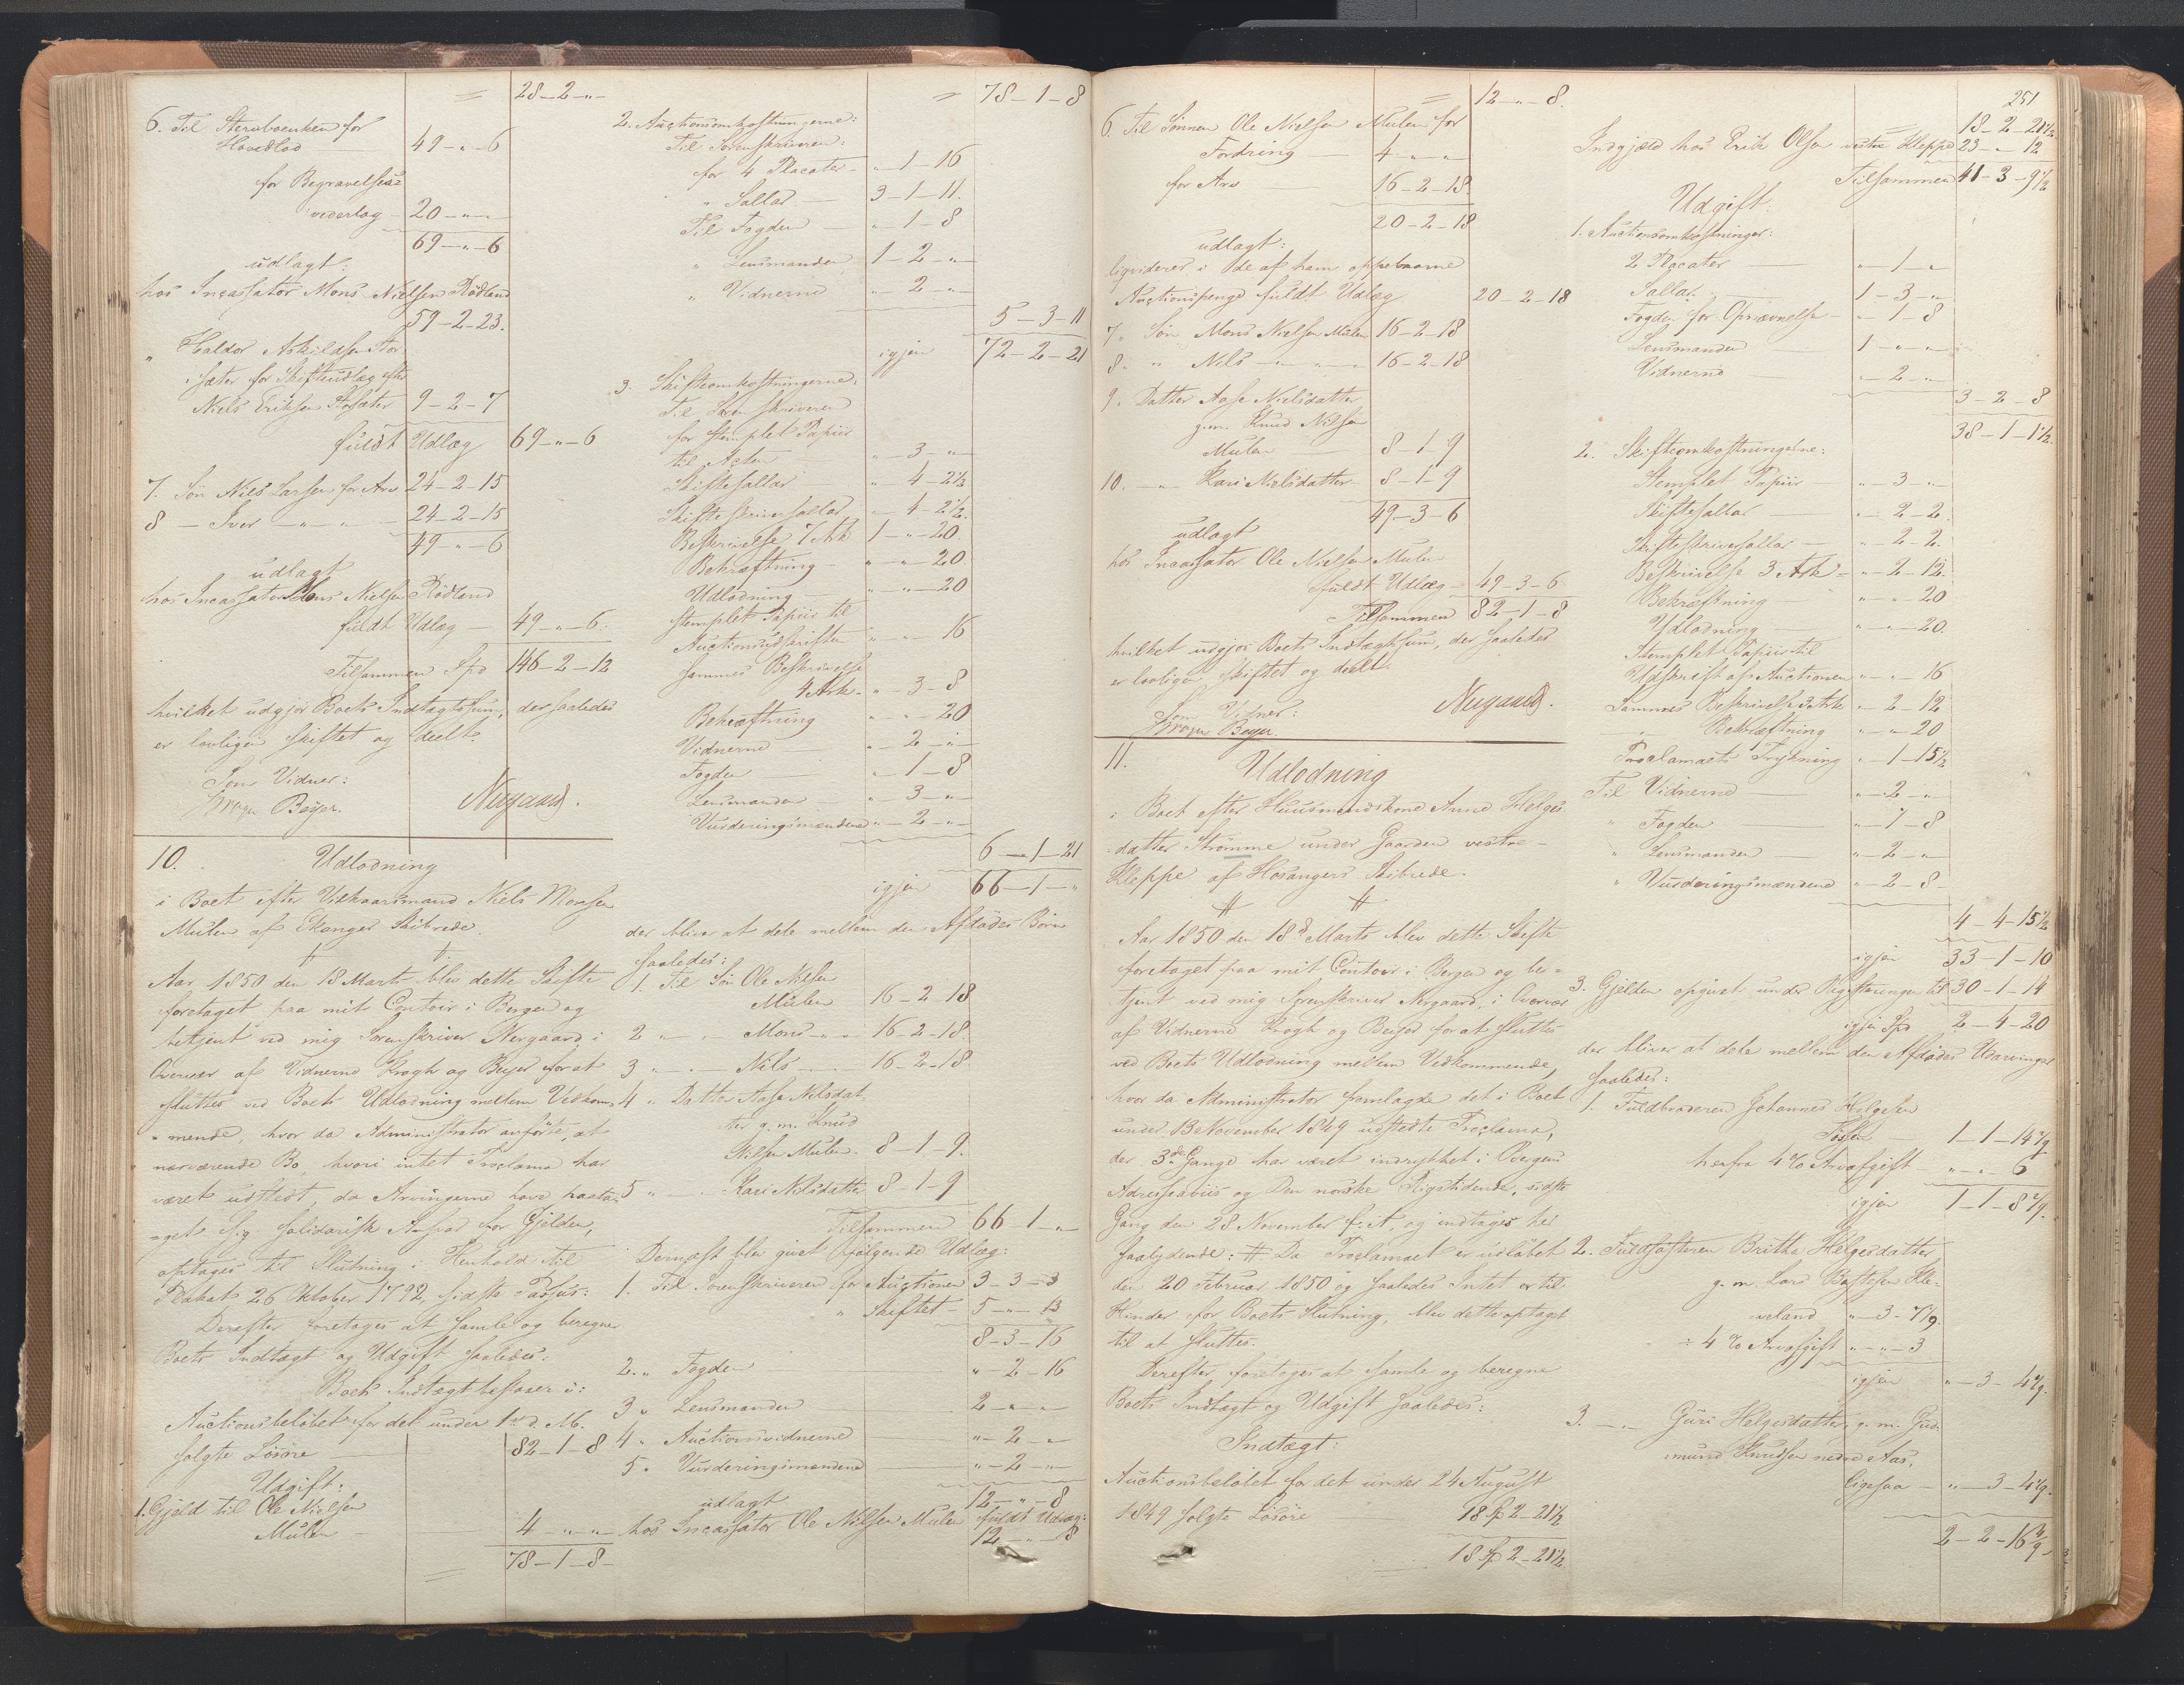 28-2-"-
6. Til Stervboenken for
Hovedlod 49-"-6
for Begravelses=
vederlag - 20-"-"
69-"-6
udlagt:
hos Incassator Mons Nielsen Rödland
59-2-23.
" Haldor Askildsen Stor-
sæter for Skifteudlæg efter
Niels Eriksen Storsæter 9-2-7
fuldt Udlæg 69-"-6
7. Sön Niels Larsen for Arv 24-2-15
8 - Iver - " - 24-2-15
49-"-6
udlagt
hos Incassator Mons Nielsen Rödland
fuldt Udlæg - 49-"-6.
Tilsammen Spd 146-2-12
hvilket udgjør Boets Indtægtssum, der saaledes
er lovligen skiftet og deelt.
Som Vidner:
Krogh Beyer. Nergaard.
10. Udlodning
i Boet efter Vilkaarsmand Niels Monsen
Mulen af Ekanger Skibrede.
Aar 1850 den 18 Marts blev dette Skifte
foretaget paa mit Contoir i Bergen og
betjent ved mig Sorenskriver Nergaard i
Overvær af Vidnerne Krogh og Beyer for at
sluttes ved Boets Udlodning mellem Vedkom-
mende, hvor da Administrator anførte, at
nærværende Bo, hvori intet Proclama har
været udstedt, da Arvingerne have paata-
get sig solidarisk Ansvar for Gjelden,
optages til Slutning i Henhold til
Plakat 26 Oktober 1792, sidste Passus:
Derefter foretages at samle og beregne
Boets Indtægt og Udgift saaledes:
Boets Indtægt bestaaer i:
Auctionsbelöbet for det under 1ste d. M.
solgte Lösöre 82-1-8
Udgift:
1. Gjeld til Ole Nielsen
Mulen - 4-"-"-
78-1-8-
78-1-8
2. Auctionsomkostningerne:
Til Sorenskriveren:
for 4 Placater - "-1-16
" Sallar. 3-1-11.
Til Fogden - "-1-8
" Lensmanden 1-2-"-
" Vidnerne "-2-"-
5-3-11
igjen 72-2-21
3. Skifteomkostningerne:
Til Sorenskriveren
for stemplet Papiir
til Acten "-3-"-
Skiftesallar "-4-2½
Skifteskriversallar "-4-2½.
Beskrivelse 7 Ark 1-"-20.
Bekræftning - "-"-20.
Udlodning "-"-20
stemplet Papiir til
Auctionsudskriften "-"-16
sammes Beskrivelse
4 Ark - "-3-8
Bekræftning "-"-20
Vidnerne "-2-"-
Fogden "-1-8
Lensmanden "-3-"-
Vurderingsmændene "-2-"-
6-1-21
igjen 66-1-"
der bliver at dele mellem den Afdødes Börn
saaledes:
1. Til Sön Ole Nielsen
Mulen 16-2-18
2 " - Mons - " 16-2-18.
3 " - Nils - 16-2-18.
4 " Datter Aase Nilsdat-
ter g. m. Knud
Nilsen Mulen - 8-1-9.
5 " - Kari Nilsdatter 8-1-9
Tilsammen 66-1-"
Dernæst blev givet følgende Udlæg:
1. Til Sorenskriveren for Auctionen 3-3-3
" Skiftet - 5-"-13
8-3-16
2. " Fogden "-2-16
3 " Lensmanden 2-"-"
4 " Auctionsvidnerne "-2-"
5. " Vurderingsmændene "-2-"
12-"-8
udlagt
hos Incassator Ole Nilsen Mulen fuldt Udlæg:
12-"-8
12-"-8.
6. Til Sönnen Ole Nielsen Mulen for
Fordring - 4-"-"
for Arv 16-2-18
20-2-18
udlagt:
liqvideres i de af ham oppebaarne
Auctionspenge fuldt Udlæg 20-2-18
7. Sön Mons Nielsen Mulen 16-2-18
8. " Nils - " - 16-2-18
9. Datter Aase Nielsdatter
g. m. Knud Nilsen
Mulen - 8-1-9
10. - " Kari Nielsdatter 8-1-9
49-3-6
udlagt
hos Incassator Ole Nielsen Mulen
fuldt Udlæg - 49-3-6
Tilsammen 82-1-8
hvilket udgjør Boets Indtægtssum, der saaledes
er lovligen skiftet og deelt.
Som Vidner: Nergaard.
Krogh Beyer.
11. Udlodning
i Boet efter Huusmandskone Anna Helges-
datter Strömme under Gaarden vestre-
Kleppe af Hosangers Skibrede.
Aar 1850 den 18de Marts blev dette Skifte
foretaget paa mit Contoir i Bergen og be=
tjent ved mig Sorenskriver Nergaard, i Overvær
af Vidnerne Krogh og Beyer for at sluttes
ved Boets Udlodning mellem Vedkommende,
hvor da Administrator fremlagde det i Boet
under 13 November 1849 udstedte Proclama,
der 3de Gange har været indrykket i Bergens
Adresseavis og Den norske Rigstidende, sidste
Gang den 28 November f. A. og indtages her
saalydende: # Da Proclamaet er udløbet
den 20 Februar 1850 og saaledes Intet er til
Hinder for Boets Slutning, blev dette optaget
til at sluttes.
Derefter foretoges at samle og beregne
Boets Indtægt og Udgift saaledes:
Indtægt:
Auctionsbelöbet for det under 24 August
1849 solgte Lösöre - 18 Sp 2-21½
18 Sp 2-21½
251
18-2-21½
Indgjæld hos Erik Olsen vestre Kleppe 23-"-12
Tilsammen 41-3-9½
Udgift:
1. Auctionsomkostninger:
2 Placater - "-1-"
Sallar. 1-3-"-
Fogden for Opnævnelse - "-1-8
Lensmanden 1-"-"
Vidnerne "-2-"-
3-2-8
38-1-1½
2. Skifteomkostningerne:
Stemplet Papiir - "-3-"-
Skiftesallar - "-2-2.
Skifteskriversallar - "-2-2.
Beskrivelse 3 Ark - "-2-12.
Bekræftning "-"-20
Udlodning - "-"-20.
Stemplet Papiir til
Udskrift af Auctionen "-"-16
Sammes Beskrivelse 3 Ark "-2-12
- " Bekræftning "-"-20
Proclamaets Trykning "-1-15½
Til Vidnerne - "-2-"
" Fogden "-1-8
" Lensmanden - "-2-"
" Vurderingsmændene "-2-8-
4-4-15½
igjen 33-1-10
3. Gjelden opgivet under Registreringen til 30-1-14
igjen Spd 2-4-20
der bliver at dele mellem den Afdødes Udarvinger
saaledes:
1. Fuldbroderen Johannes Helgesen
1-1-14 2/9
herfra 4 % Arveafgift "-"-6
igjen 1-1-8 2/9.
2. Fuldsøsteren Britha Helgesdatter
g. m. Lars Kle-
veland "-3-7 1/9.
÷ 4 % Arveafgift "-"-3
igjen "-3-4 1/9.
3. - " Guri Helgesdatter g. m. Gud-
mund Knudsen nedre Aas,
ligesaa - "-3-4 1/9.
2-2-16 4/9